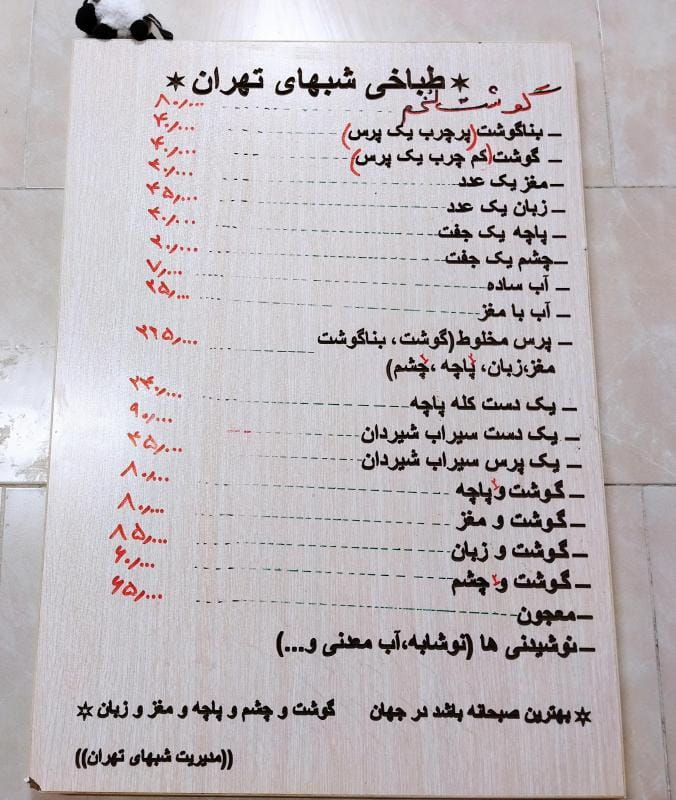 ✶ طباخی شبهای تهران ✶
گوشت لخم ۸۰٫۰۰۰
– بناگوشت(پرچرب یک پرس) ۴۰٫۰۰۰
– گوشت(کم چرب یک پرس) ۴۰٫۰۰۰
– مغز یک عدد ۴۰٫۰۰۰
– زبان یک عدد ۴۵٫۰۰۰
– پاچه یک جفت ۴۰٫۰۰۰
–چشم یک جفت ۲۰٫۰۰۰
– آب ساده ۷٫۰۰۰
– آب با مغز ۲۵٫۰۰۰
– پرس مخلوط(گوشت، بناگوشت ۲۶۵٫۰۰۰
مغز،زبان، ۲ پاچه ،۲ چشم)
– یک دست کله پاچه ۳۴۰٫۰۰۰
– یک دست سیراب شیردان ۹۰٫۰۰۰
– یک پرس سیراب شیردان ۴۵٫۰۰۰
– گوشت و ۲ پاچه ۸۰٫۰۰۰
– گوشت و مغز ۸۰٫۰۰۰
– گوشت و زبان ۸۵٫۰۰۰
– گوشت و ۲ چشم ۶۰٫۰۰۰
–معجون ۶۵٫۰۰۰
–نوشیدنی ها (نوشابه،آب معدنی و...)
✶ بهترین صبحانه باشد در جهان گوشت و چشم و پاچه و مغز و زبان ✶
((مدیریت شبهای تهران))